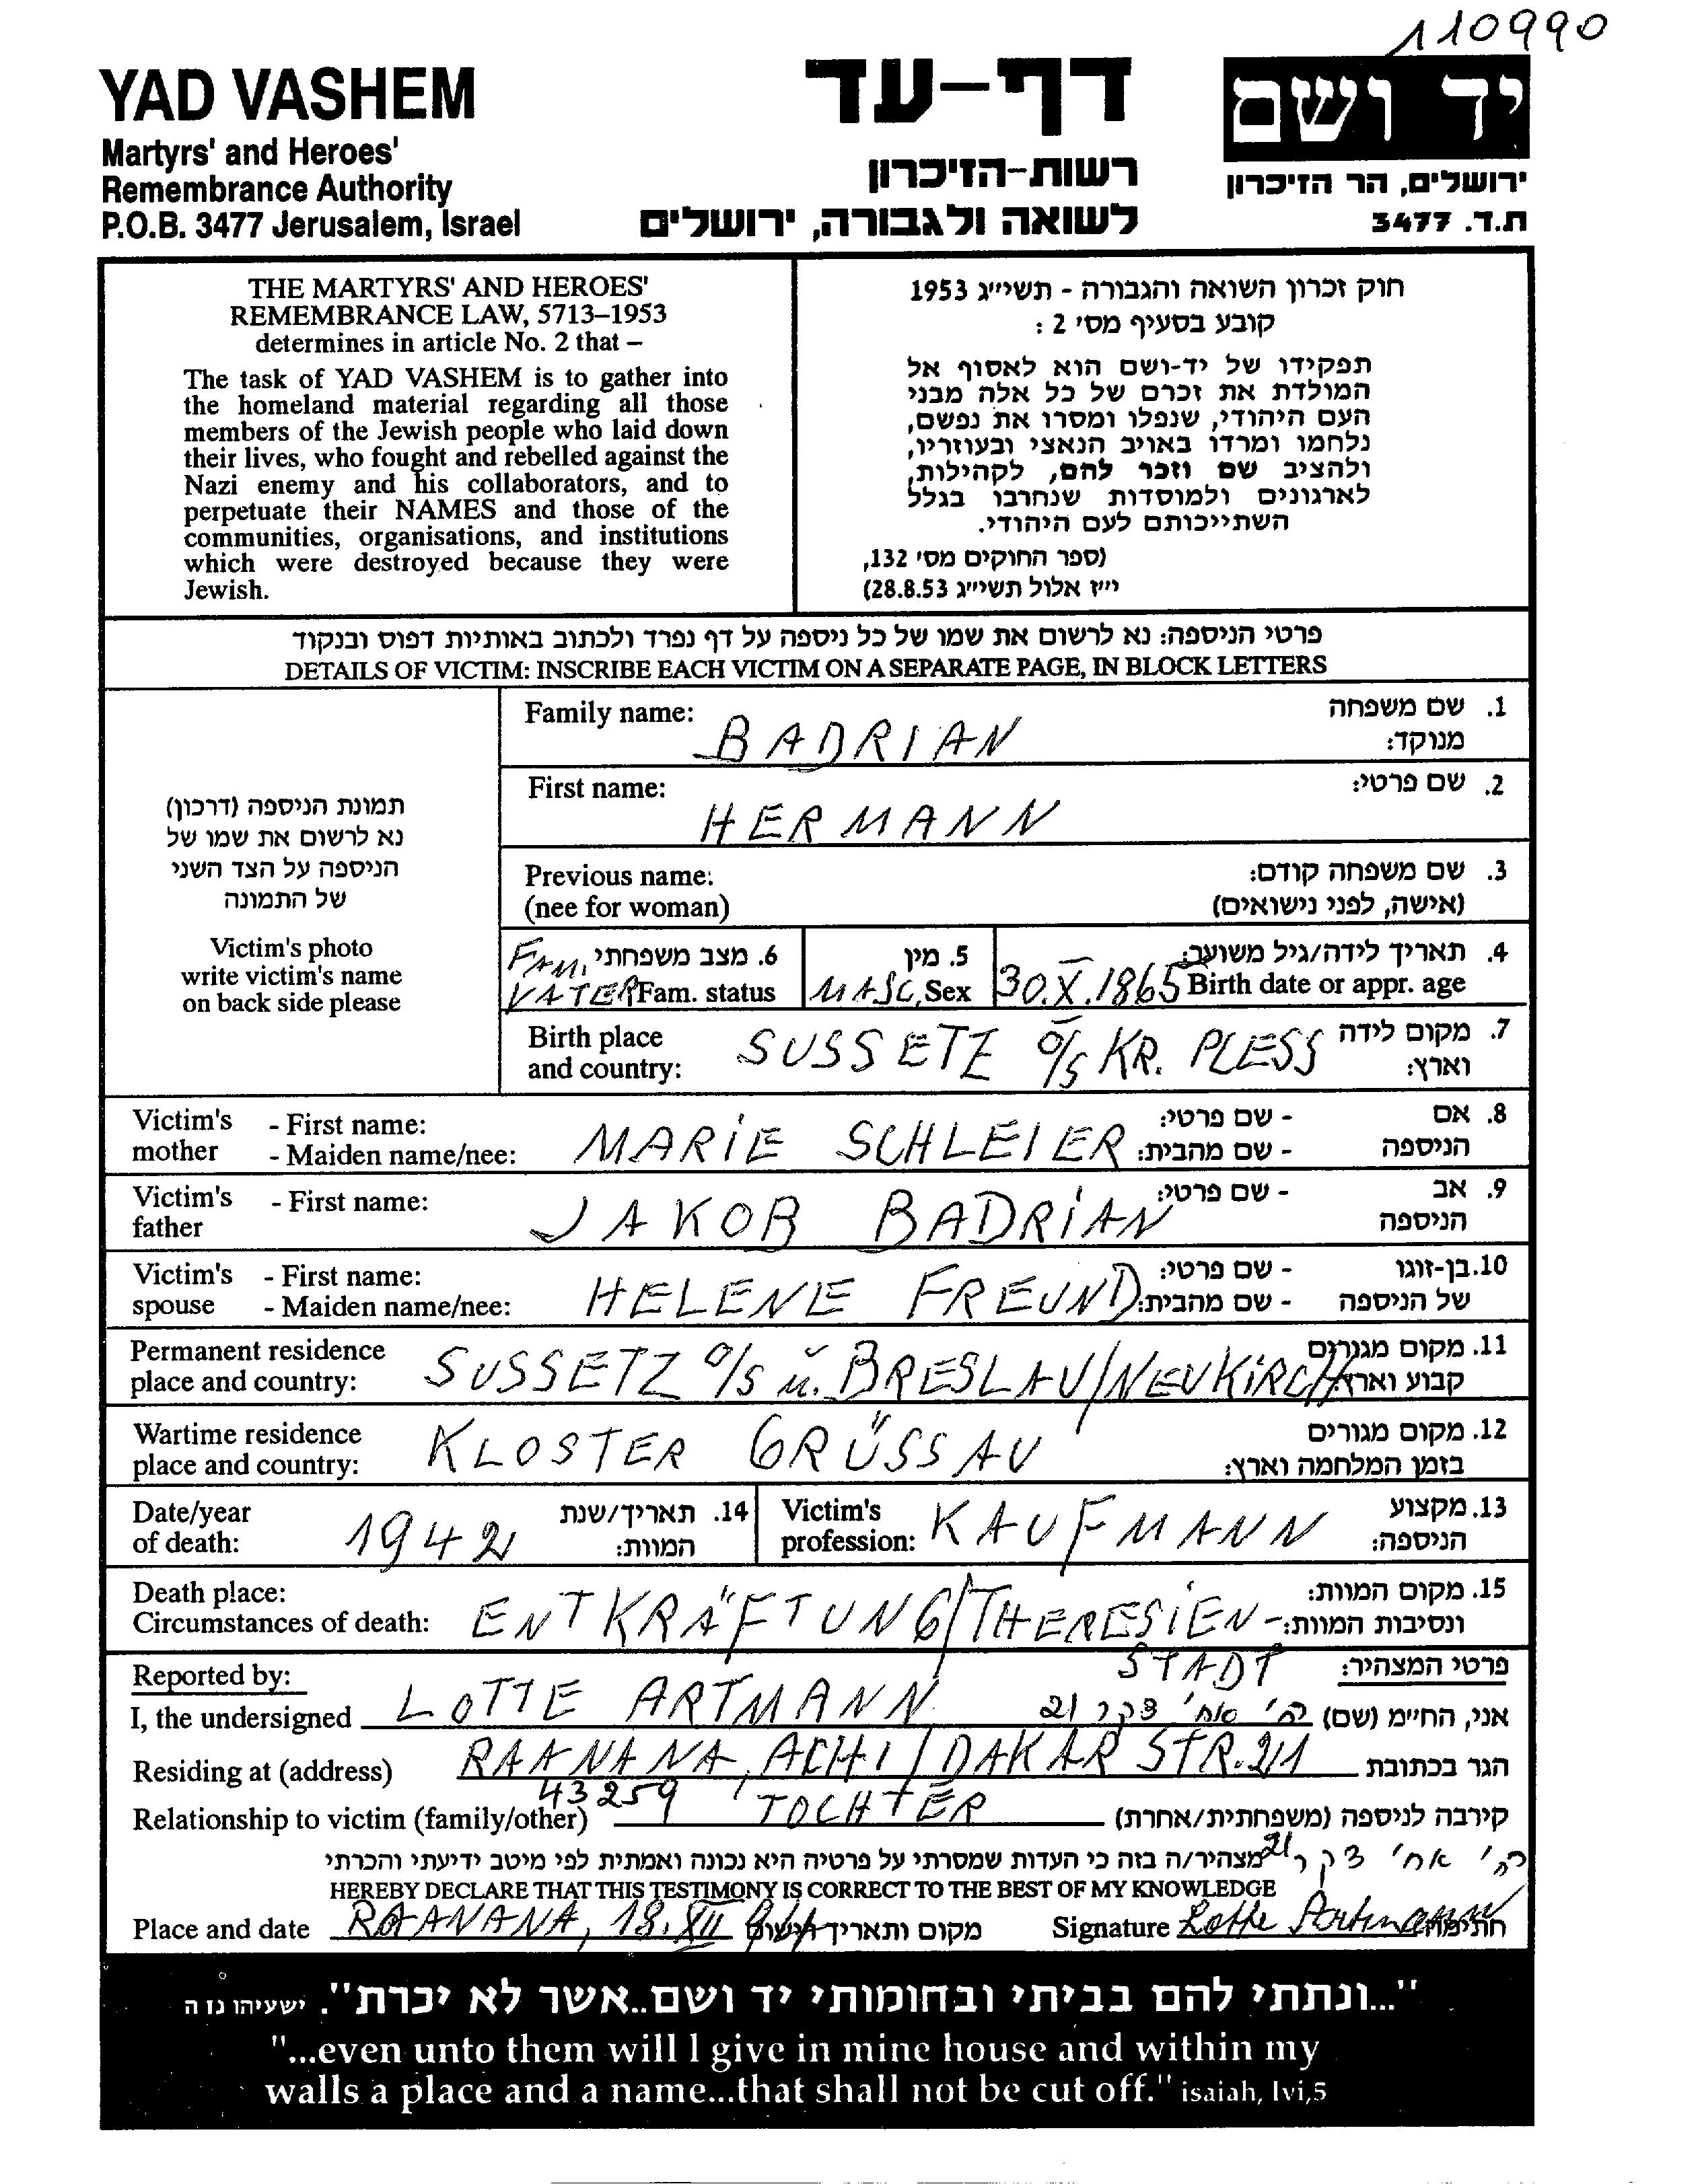 110990
YAD VASHEM
Martyrs' and Heroes'
Remembrance Authority
P.O.B. 3477 Jerusalem, Israel
דף-עד
רשות-הזיכרון
לשואה ולגבורה, ירושלים
יד ושם
ירושלים, הר הזיכרון
ת.ד. 3477
THE MARTYRS' AND HEROES'
REMEMBRANCE LAW, 5713–1953
determines in article No. 2 that –
The task of YAD VASHEM is to gather into
the homeland material regarding all those
members of the Jewish people who laid down
their lives, who fought and rebelled against the
Nazi enemy and his collaborators, and to
perpetuate their NAMES and those of the
communities, organisations, and institutions
which were destroyed because they were
Jewish.
חוק זכרון השואה והגבורה - תשי״ג 1953
קובע בסעיף מס׳ 2 :
תפקידו של יד-ושם הוא לאסוף אל
המולדת את זכרם של כל אלה מבני
העם היהודי, שנפלו ומסרו את נפשם,
נלחמו ומרדו באויב הנאצי ובעוזריו,
ולהציב שם וזכר להם, לקהילות,
לארגונים ולמוסדות שנחרבו בגלל
השתייכותם לעם היהודי.
(ספר החוקים מס׳ 132,
י״ז אלול תשי״ג 28.8.53)
פרטי הניספה: נא לרשום את שמו של כל ניספה על דף נפרד ולכתוב באותיות דפוס ובנקוד
DETAILS OF VICTIM: INSCRIBE EACH VICTIM ON A SEPARATE PAGE, IN BLOCK LETTERS
תמונת הניספה (דרכון)
נא לרשום את שמו של
הניספה על הצד השני
של התמונה
Victim's photo
write victim's name
on back side please
Family name: BADRIAN 1. שם משפחה
מנוקד:
First name: HERMANN 2. שם פרטי:
Previous name: 3. שם משפחה קודם:
(nee for woman) (אישה, לפני נישואים)
FAM. 6. מצב משפחתי 5. מין 4. תאריך לידה/גיל משוער:
VATER Fam. status MASC. Sex 30.X.1865 Birth date or appr. age
Birth place SUSSETZ O/S KR. PLESS 7. מקום לידה
and country: וארץ:
Victim's - First name: - שם פרטי: 8. אם
mother - Maiden name/nee: MARIE SCHLEIER - שם מהבית: הניספה
Victim's - First name: - שם פרטי: 9. אב
father JAKOB BADRIAN הניספה
Victim's - First name: - שם פרטי: 10. בן-זוגו
spouse - Maiden name/nee: HELENE FREUND - שם מהבית: של הניספה
Permanent residence 11. מקום מגורים
place and country: SUSSETZ O/S u. BRESLAU/NEUKIRCH קבוע וארץ
Wartime residence 12. מקום מגורים
place and country: KLOSTER GRÜSSAU בזמן המלחמה וארץ:
Date/year 14. תאריך/שנת Victim's 13. מקצוע
of death: 1942 המוות: profession: KAUFMANN הניספה:
Death place: 15. מקום המוות:
Circumstances of death: ENTKRÄFTUNG/THERESIEN- ונסיבות המוות:
STADT
Reported by: פרטי המצהיר:
I, the undersigned LOTTE ARTMANN אני, החיימ (שם)
Residing at (address) RAANANA, ACHI/DAKAR STR. 21 הגר בכתובת
43259
Relationship to victim (family/other) TOCHTER קירבה לניספה (משפחתית/אחרת)
רח׳ אח׳ דקר 21
מצהיר/ה בזה כי העדות שמסרתי על פרטיה היא נכונה ואמתית לפי מיטב ידיעתי והכרתי
HEREBY DECLARE THAT THIS TESTIMONY IS CORRECT TO THE BEST OF MY KNOWLEDGE
Place and date RAANANA, 18.XII מקום ותאריך Signature Lotte Artmann חתימה
"...ונתתי להם בביתי ובחומותי יד ושם..אשר לא יכרת". ישעיהו נו ה
"...even unto them will I give in mine house and within my
walls a place and a name...that shall not be cut off." isaiah, lvi,5